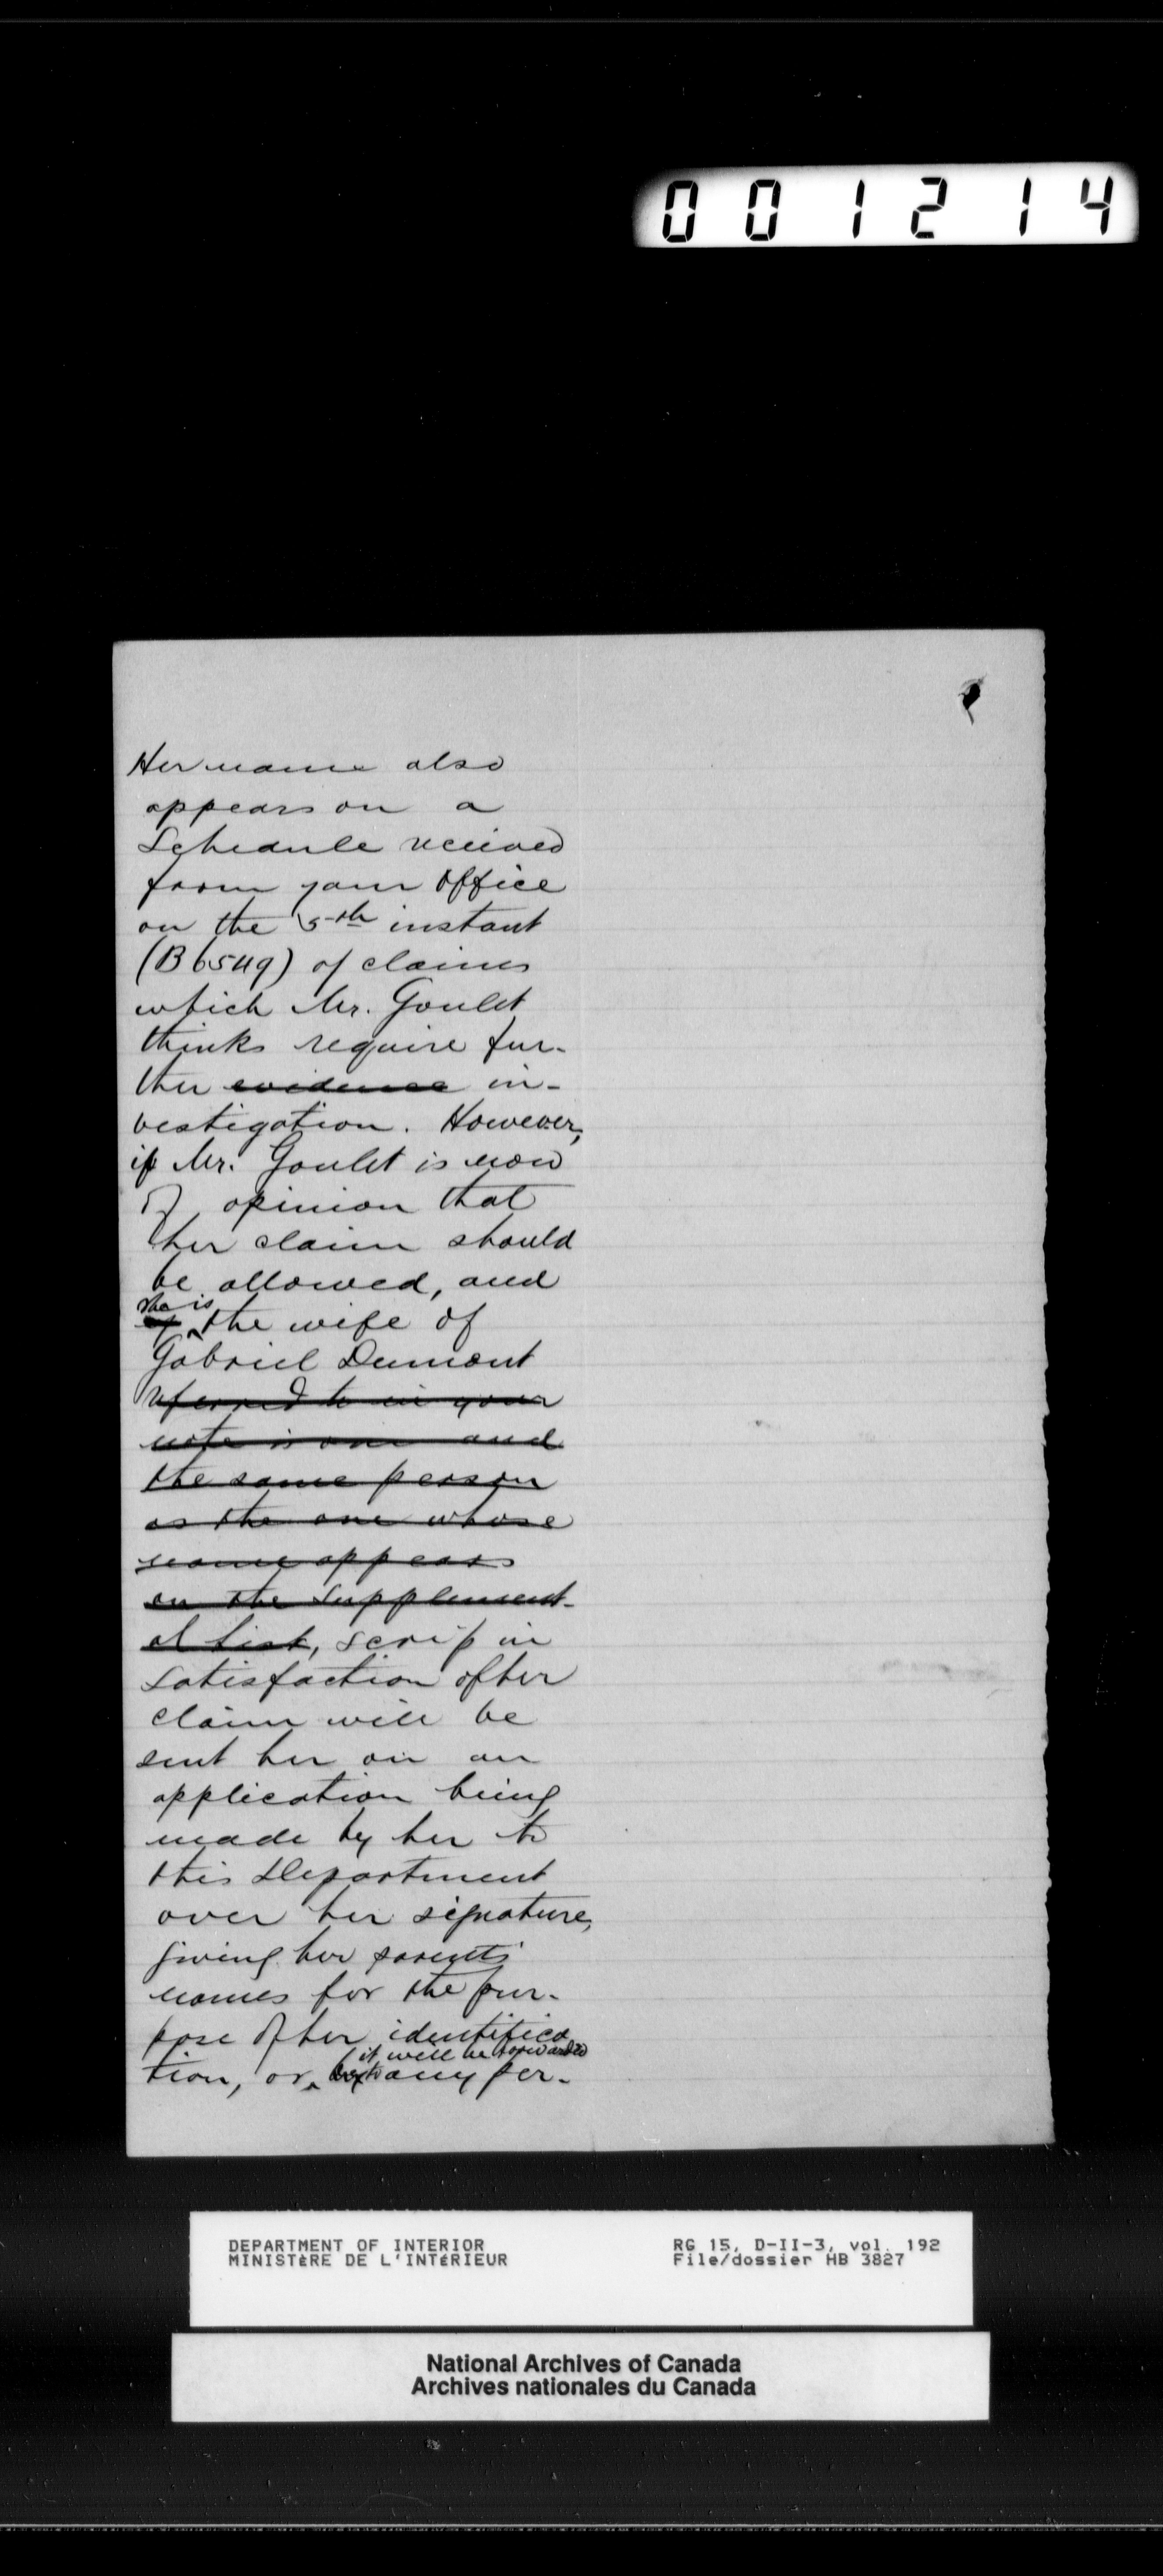 001214
Her name also
appears on a
Schedule received
from your Office
on the 5th instant
(B 6549) of claims
which Mr. Goulet
thinks require fur-
ther evidence in-
vestigation. However,
if Mr. Goulet is now
of opinion that
her claim should
be allowed, and
she is
if the wife of
Gabriel Dumont
referred to in your
note is one and
the same person
as the one whose
name appears
on the Supplement-
al list, scrip in
satisfaction of her
claim will be
sent her on an
application being
made by her to
this Department
over her signature,
giving her parents'
names for the pur-
pose of her identifica
it will be forwarded
tion, or to any per-
DEPARTMENT OF INTERIOR
MINISTÈRE DE L'INTÉRIEUR
RG 15, D-II-3, vol. 192
File/dossier HB 3827
National Archives of Canada
Archives nationales du Canada